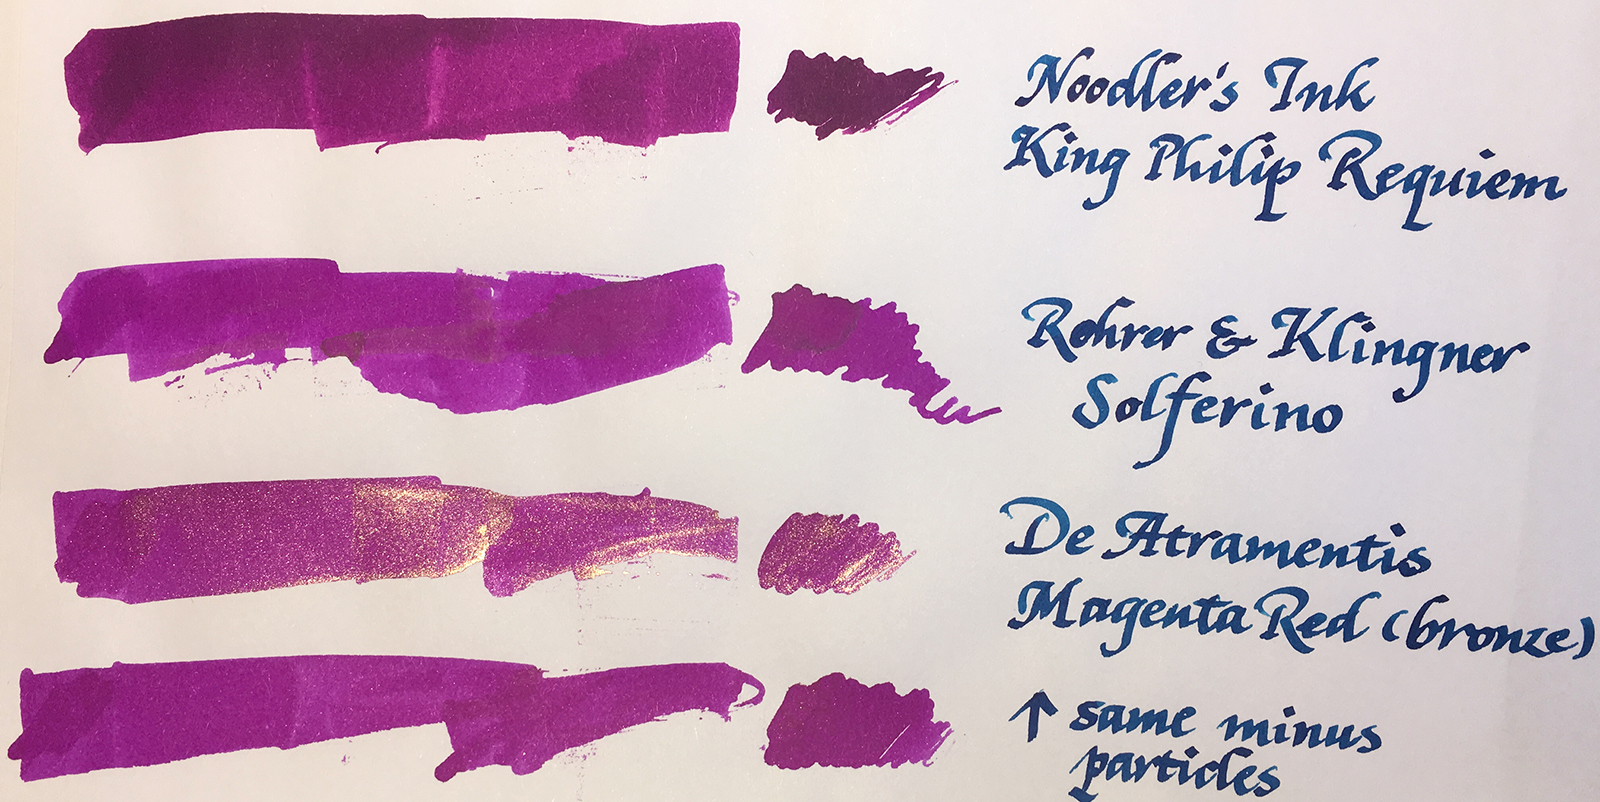 Noodler's Ink
King Philip Requiem
Rohrer & Klingner
Solferino
De Atramentis
Magenta Red (bronze)
↑ same minus
particles